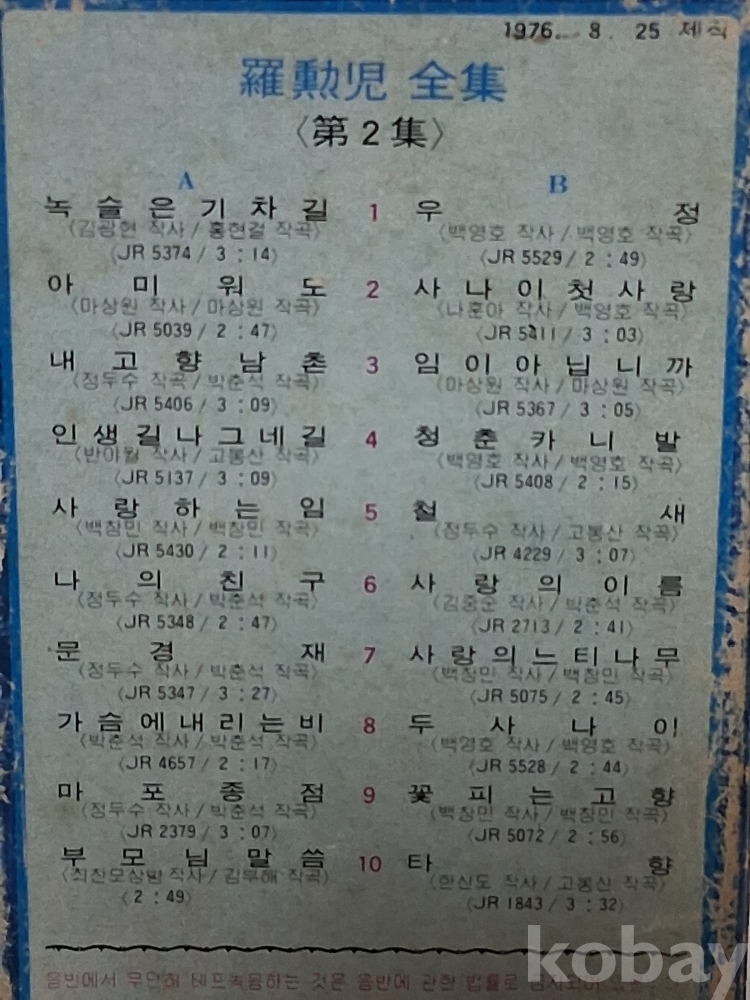 1976. 8. 25 제작
羅勲児 全集
〈第2集〉
A
녹슬은기차길
〈김광현 작사/홍현걸 작곡〉
〈JR 5374/3:14〉
아미워도
〈마상원 작사/마상원 작곡〉
〈JR 5039/2:47〉
내고향남촌
〈정두수 작곡/박춘석 작곡〉
〈JR 5406/3:09〉
인생길나그네길
〈반야월 작사/고봉산 작곡〉
〈JR 5137/3:09〉
사랑하는임
〈백창민 작사/백창민 작곡〉
〈JR 5430/2:11〉
나의친구
〈정두수 작사/박춘석 작곡〉
〈JR 5348/2:47〉
문경재
〈정두수 작사/박춘석 작곡〉
〈JR 5347/3:27〉
가슴에내리는비
〈박춘석 작사/박춘석 작곡〉
〈JR 4657/2:17〉
마포종점
〈정두수 작사/박춘석 작곡〉
〈JR 2379/3:07〉
부모님말씀
작사/김부해 작곡〉
〈2:49〉
1
2
3
4
5
6
7
8
9
10
B
우정
〈백영호 작사/백영호 작곡〉
〈JR 5529/2:49〉
사나이첫사랑
〈나훈아 작사/백영호 작곡〉
〈JR 5411/3:03〉
임이아닙니까
〈마상원 작사/마상원 작곡〉
〈JR 5367/3:05〉
청춘카니발
〈백영호 작사/백영호 작곡〉
〈JR 5408/2:15〉
철새
〈정두수 작사/고봉산 작곡〉
〈JR 4229/3:07〉
사랑의이름
〈김중순 작사/박춘석 작곡〉
〈JR 2713/2:41〉
사랑의느티나무
〈백창민 작사/백창민 작곡〉
〈JR 5075/2:45〉
두사나이
〈백영호 작사/백영호 작곡〉
〈JR 5528/2:44〉
꽃피는고향
〈백창민 작사/백창민 작곡〉
〈JR 5072/2:56〉
타향
〈한산도 작사/고봉산 작곡〉
〈JR 1843/3:32〉
음반에서 무단히 테프녹음하는 것은 음반에 관한 법률로
kobay